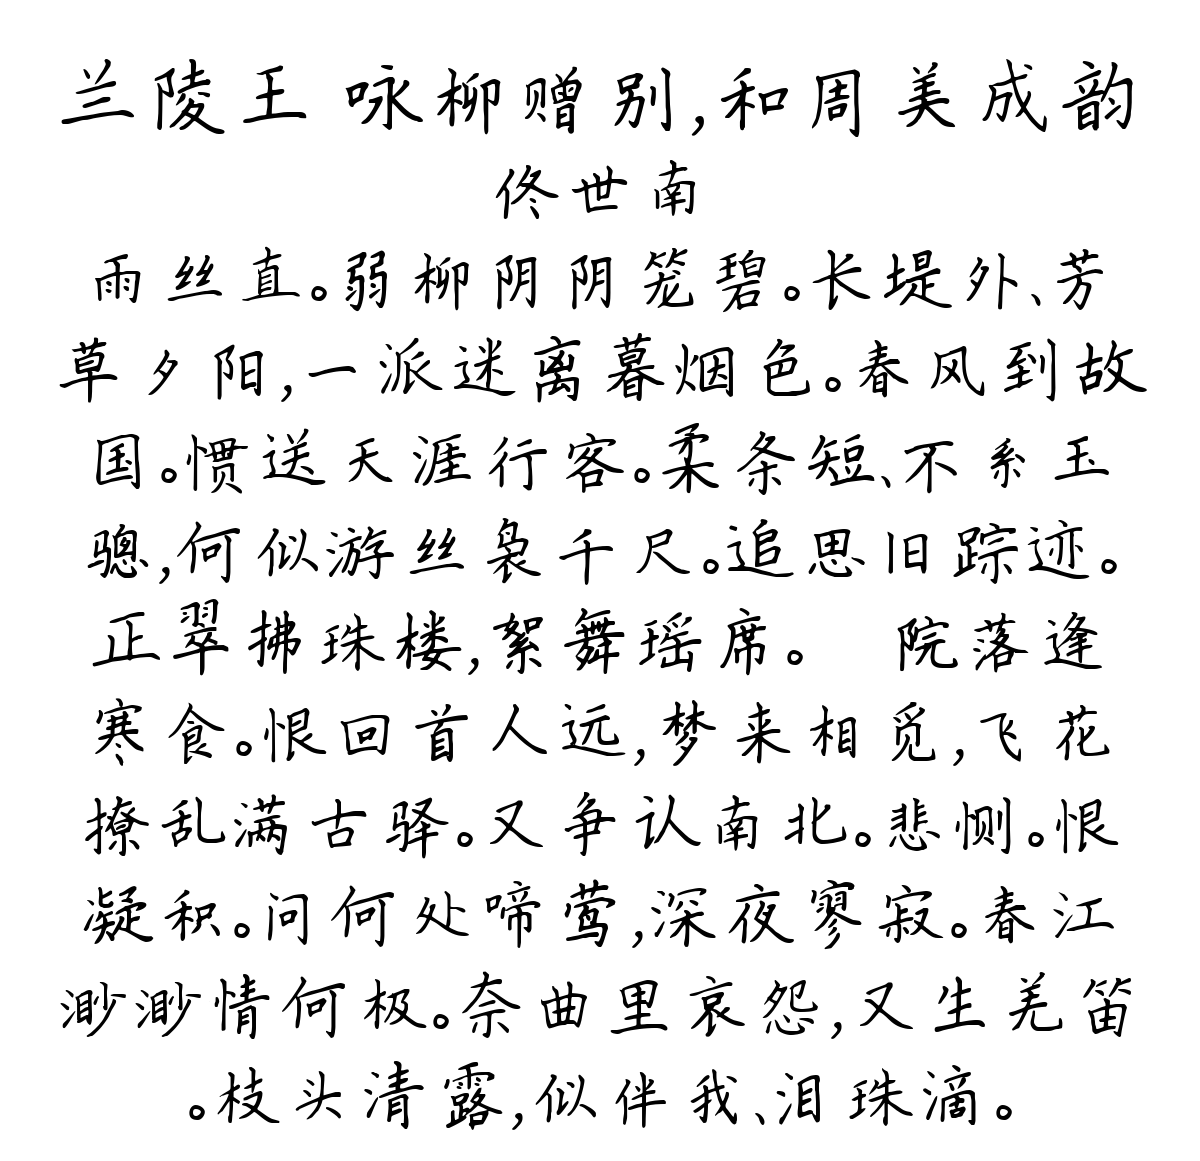 兰陵王 咏柳赠别,和周美成韵
佟世南
雨丝直。弱柳阴阴笼碧。长堤外、芳
草夕阳,一派迷离暮烟色。春风到故
国。惯送天涯行客。柔条短、不系玉
骢,何似游丝袅千尺。追思旧踪迹。
正翠拂珠楼,絮舞瑶席。 院落逢
寒食。恨回首人远,梦来相觅,飞花
撩乱满古驿。又争认南北。悲恻。恨
凝积。问何处啼莺,深夜寥寂。春江
渺渺情何极。奈曲里哀怨,又生羌笛
。枝头清露,似伴我、泪珠滴。